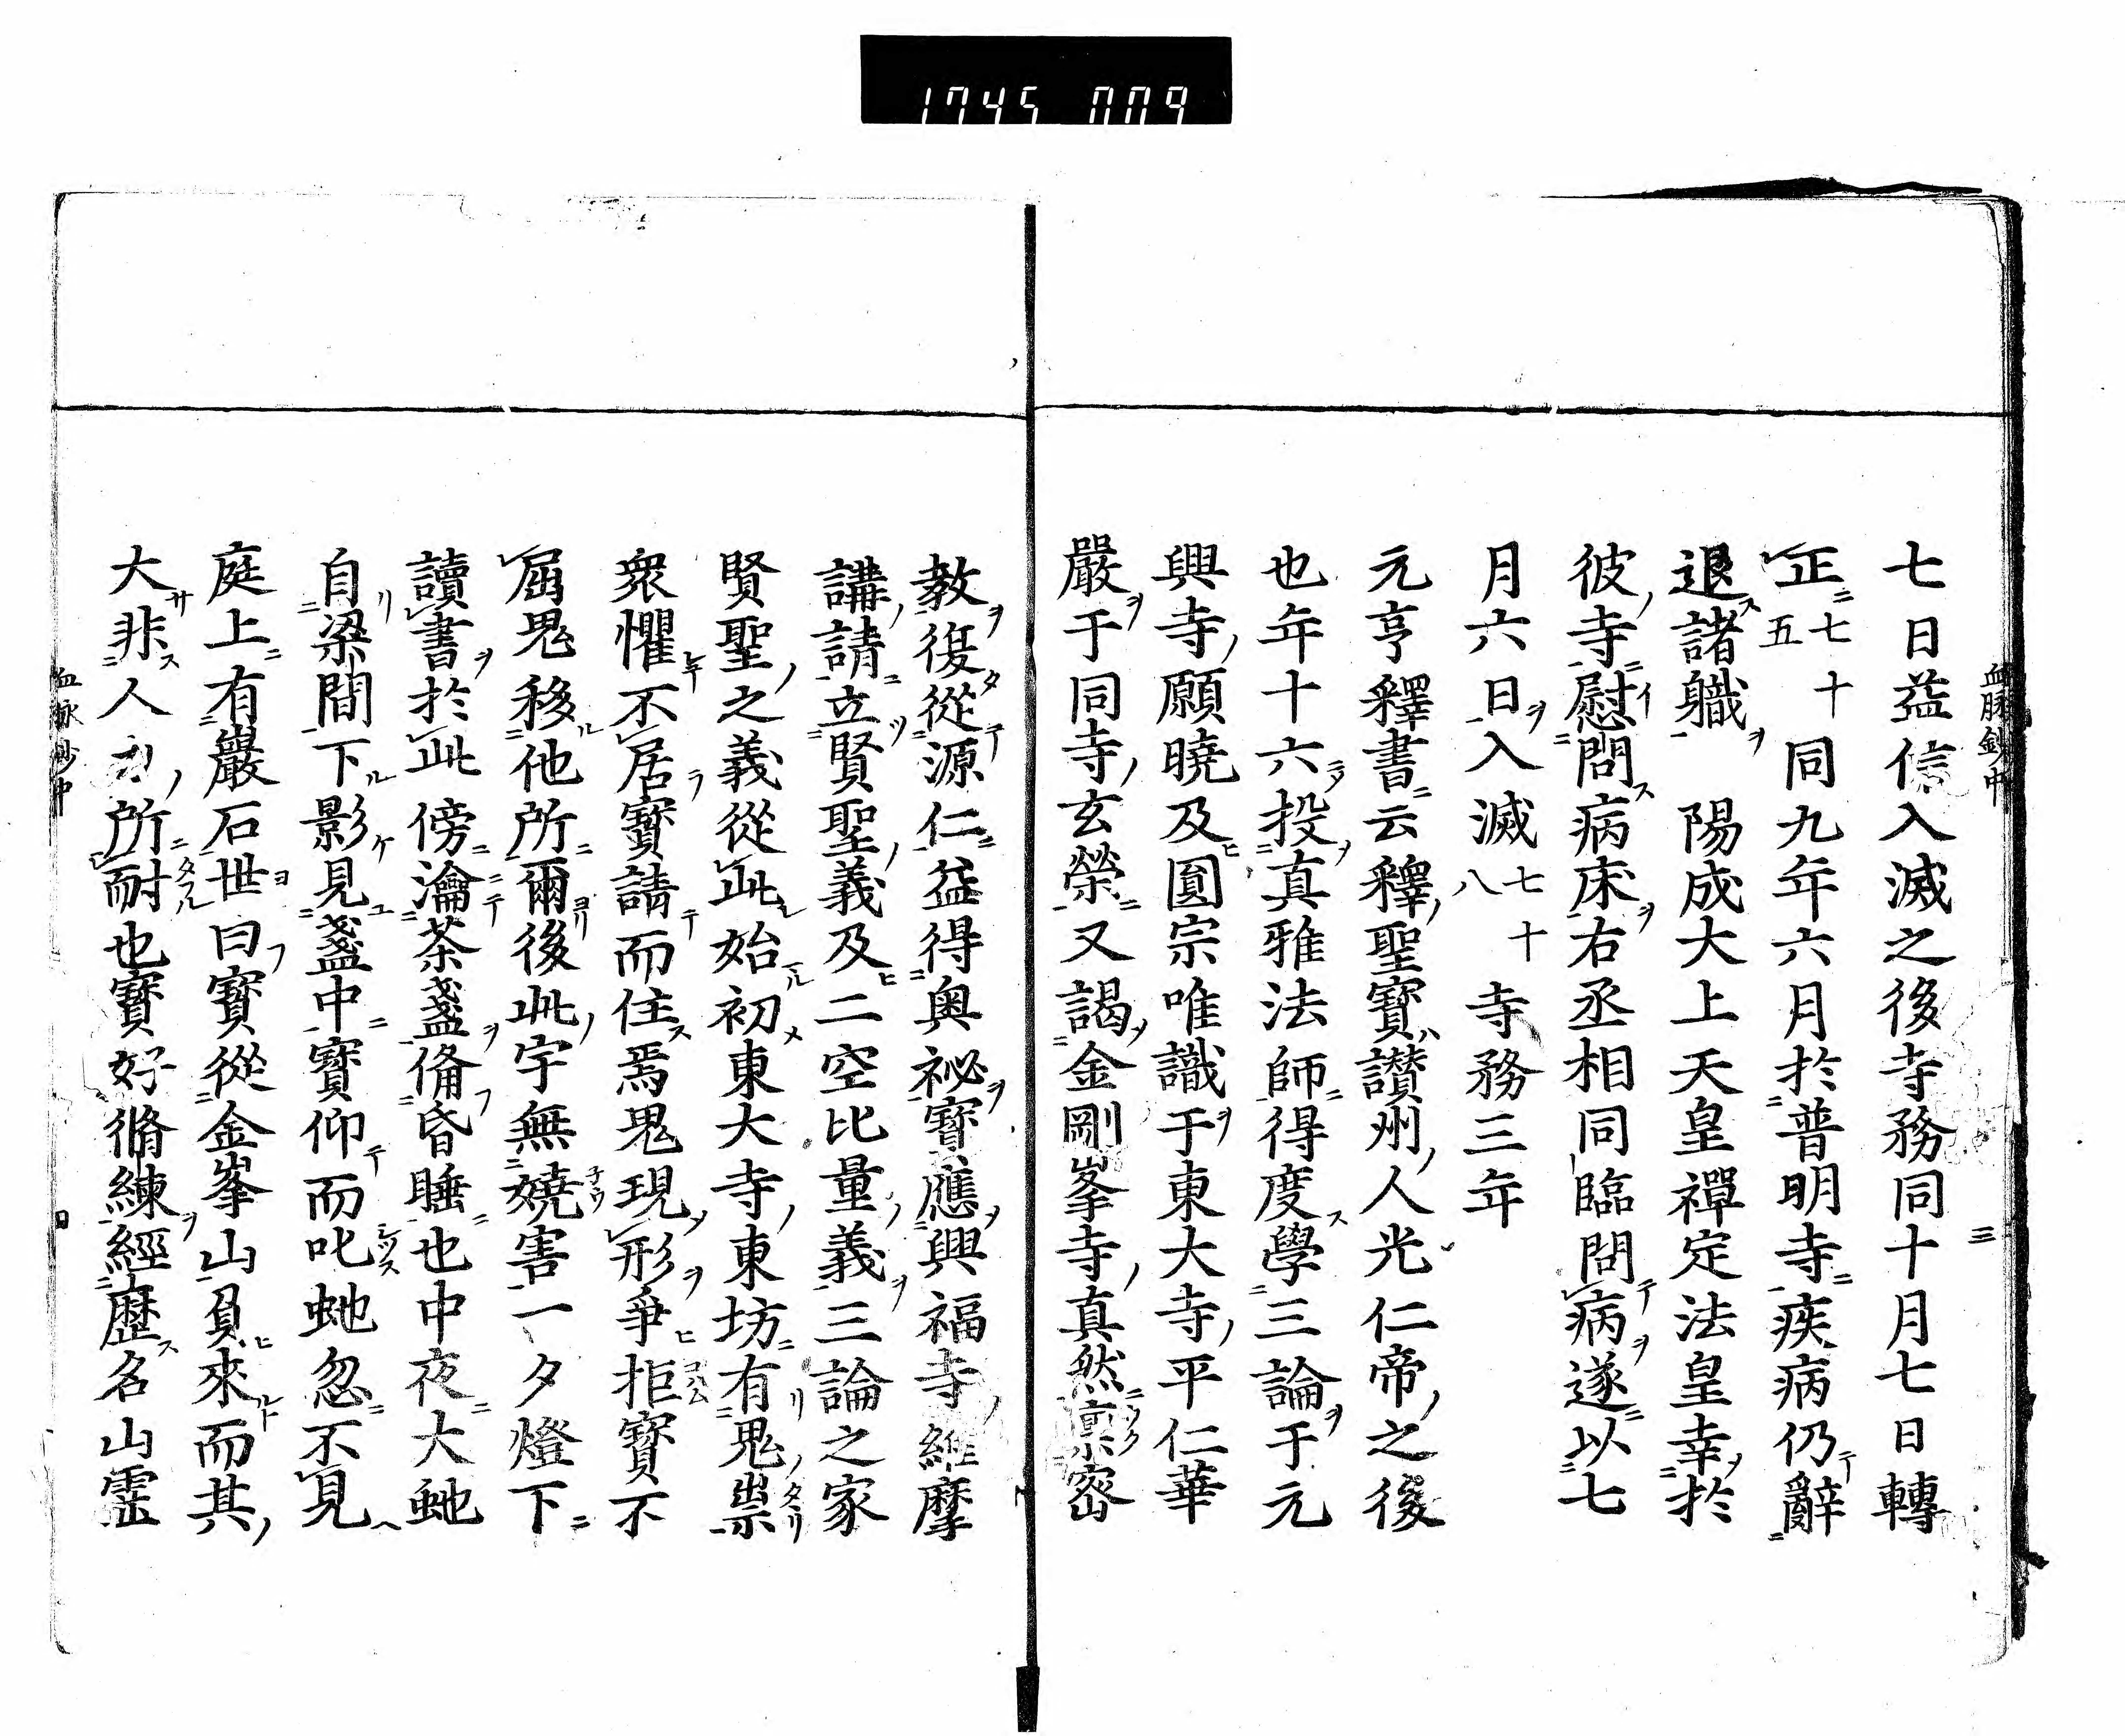 1745 009
血脉鈔中 三
七日益信入滅之後寺務同十月七日轉
正七十五同九年六月於普明寺疾病仍辭
退諸職 陽成大上天皇禪定法皇幸於
彼寺慰問病床右丞相同臨問病遂以七
月六日入滅七十八 寺務三年
元亨釋書云釋聖寶讃州人光仁帝之後
也年十六投真雅法師得度學三論于元
興寺願曉及圓宗唯識于東大寺平仁華
嚴于同寺玄榮又謁金剛峯寺真然禀密
教復從源仁益得奧祕寶應興福寺維摩
講請立賢聖義及二空比量義三論之家
賢聖之義從此始初東大寺東坊有鬼祟
衆懼不居寶請而住焉鬼現形爭拒寶不
屈鬼移他所爾後此宇無嬈害一夕燈下
讀書於此傍瀹茶盞備昏睡也中夜大虵
自梁間下影見盞中寶仰而叱虵忽不見
庭上有巖石世曰寶從金峯山負來而其
大非人力所耐也寶好脩練經歷名山靈
血脉鈔中 四